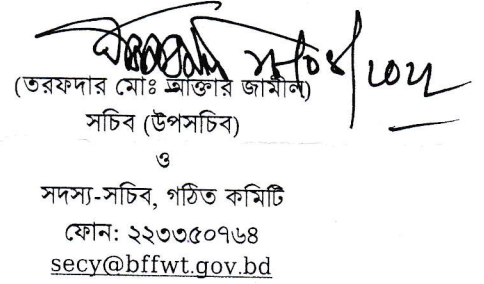 (তরফদার মোঃ আক্তার জামীল)
সচিব (উপসচিব)
ও
সদস্য-সচিব, গঠিত কমিটি
ফোন: ২২৩৩৫০৭৬৪
secy@bffwt.gov.bd